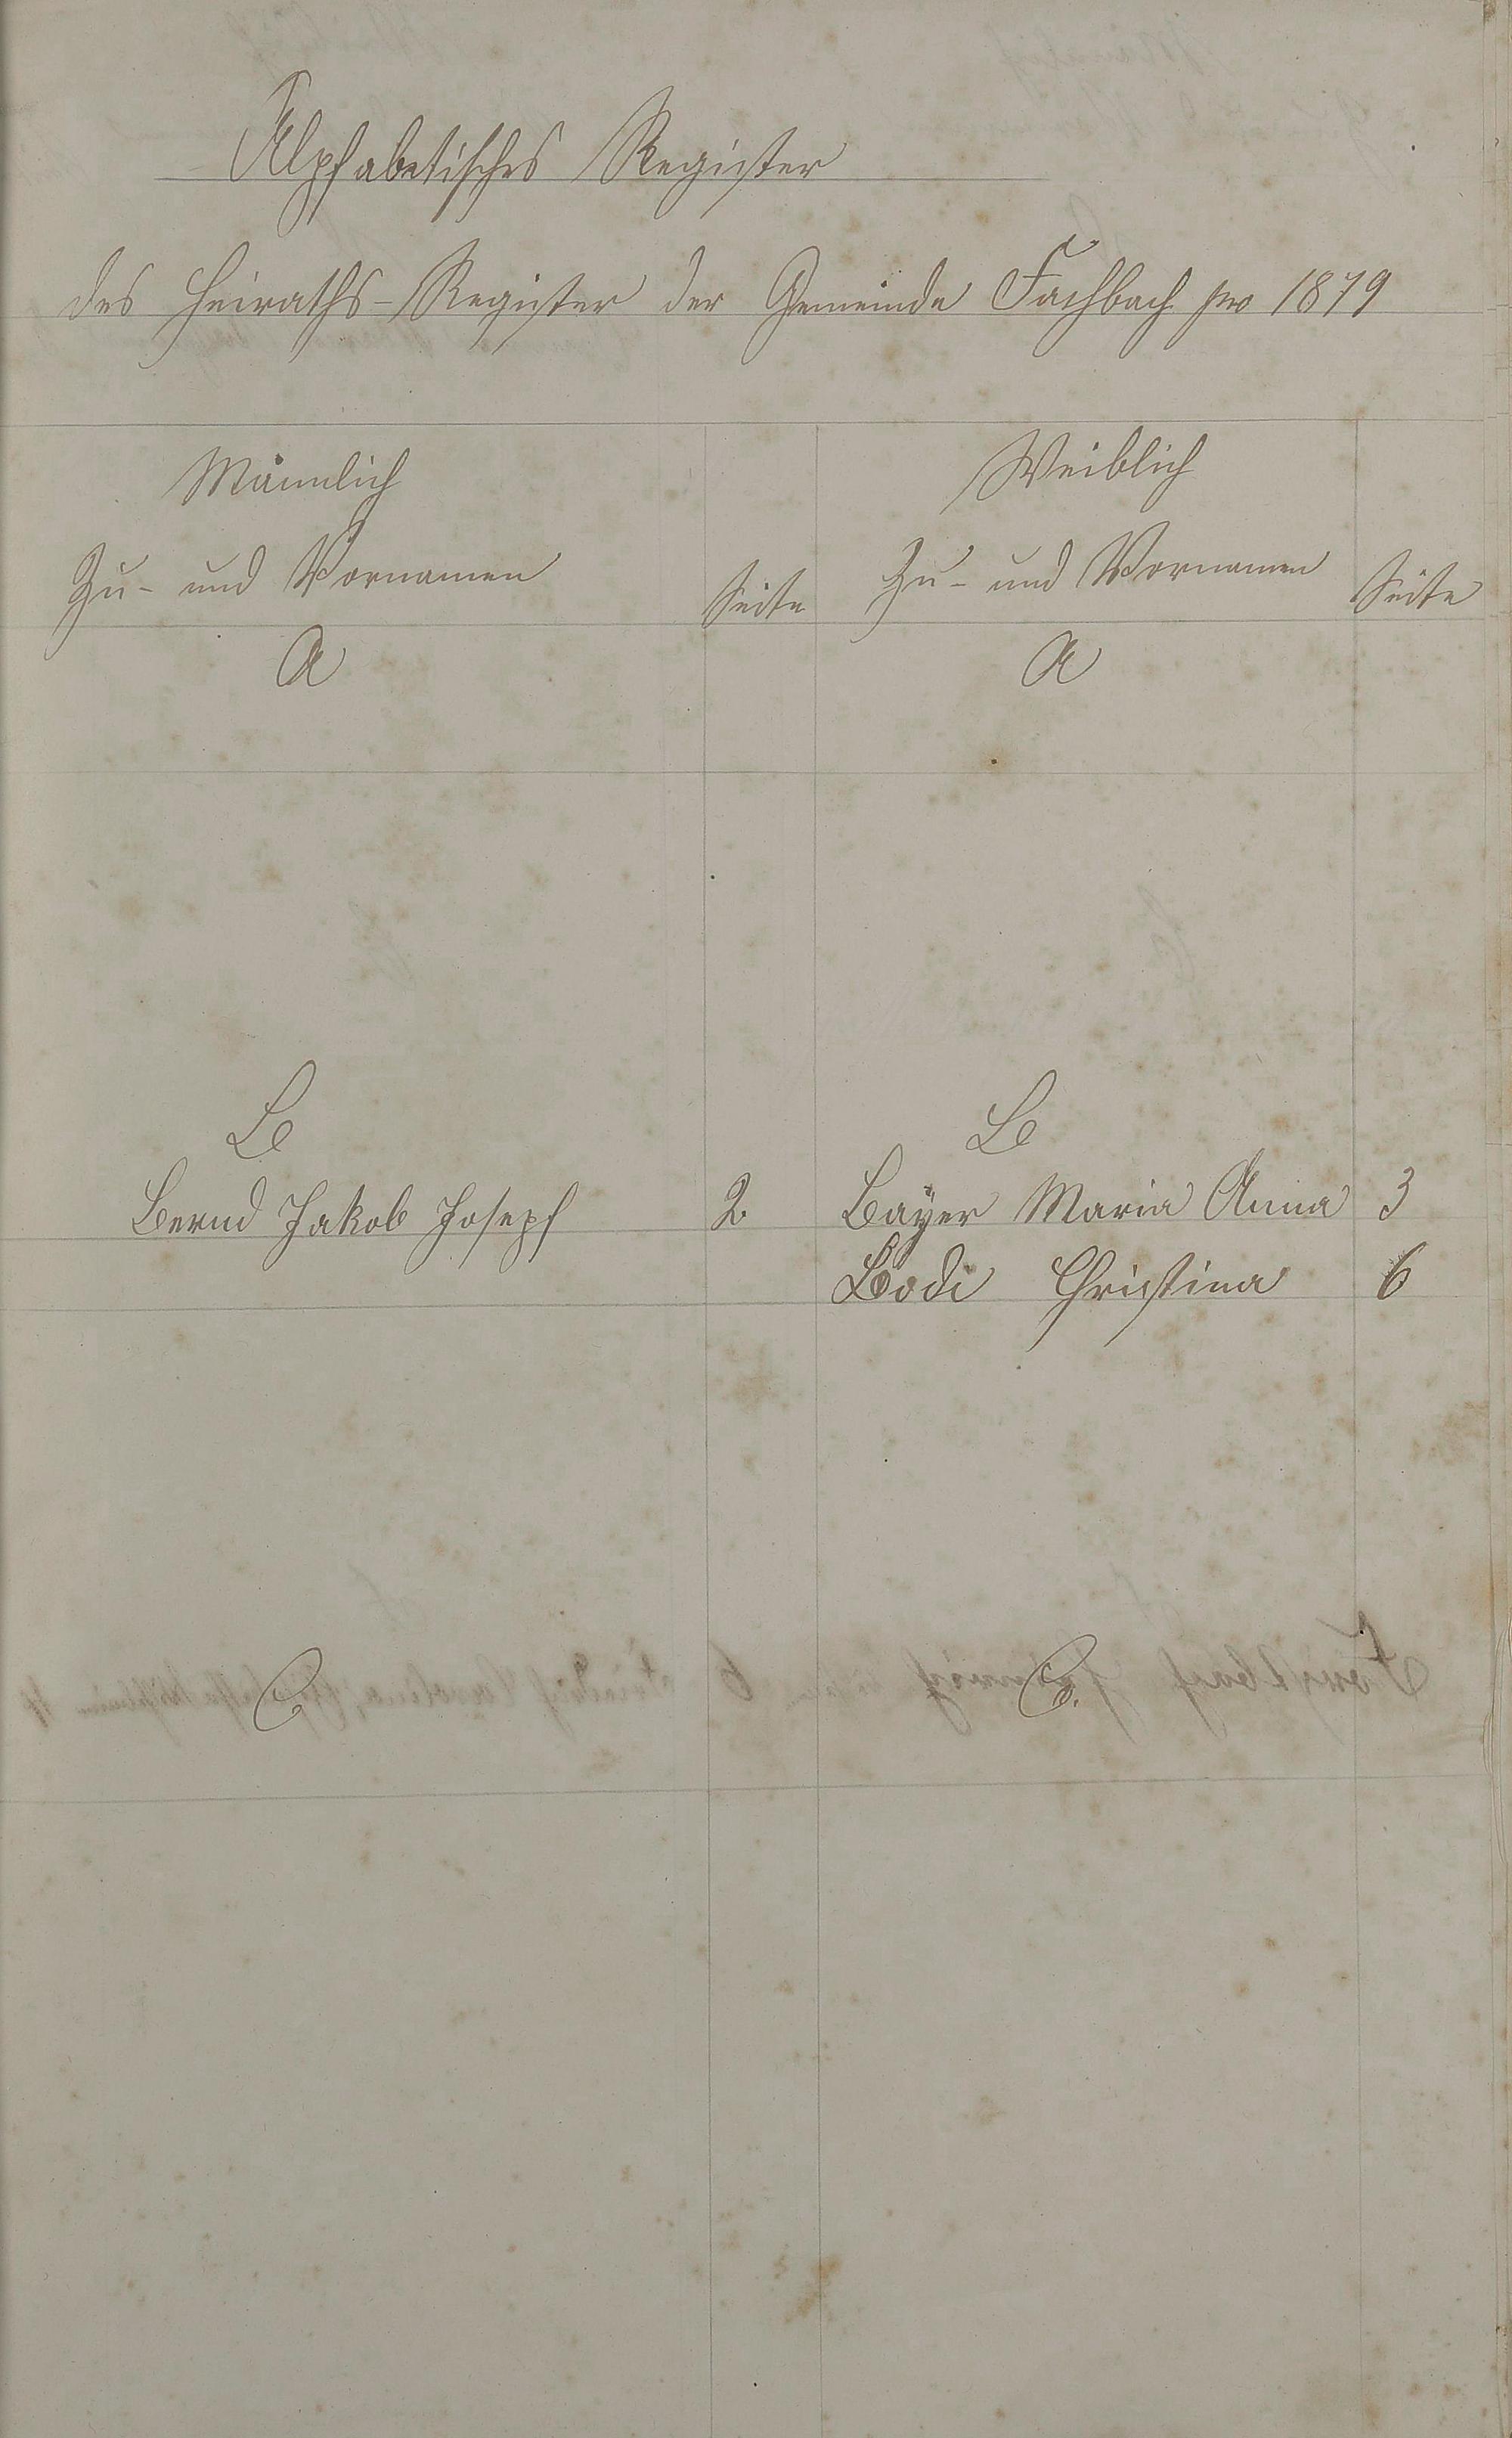 Alphabetisches Register
des Heiraths-Register der Gemeinde Fachbach pro 1879
Männlich Weiblich
Zu- und Vornamen Seite Zu- und Vornamen Seite
A A
B B
Bernd Jakob Joseph 2 Bayer Maria Anna 3
Bodi Christina 6
C C.